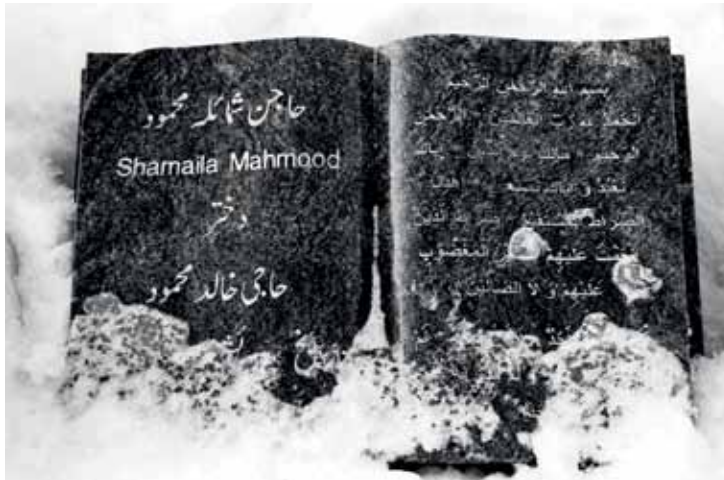 حاجن شمائلہ محمود
Shamaila Mahmood
دختر
حاجی خالد محمود
بسم الله الرحمن الرحيم
الحمد لله رب العالمين الرحمن
الرحيم مالك
نعبد و اياك
الصراط المستقيم صراط الذين
انعمت عليهم غير المغضوب
عليهم و لا الضالين